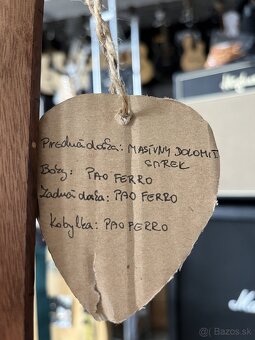 Predná doska: MASÍVNY DOLOMIT
SMREK
Boky: PAO FERRO
Zadná doska: PAO FERRO
Kobylka: PAO FERRO
Marshall
© Bazos.sk